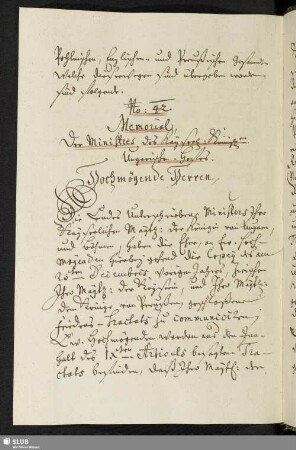 Pohlnischen, Englischen und Preußischen Gesandten
welche hierselbst sind übergeben worden
sind folgende.
No: 42
Memorial
Der Ministres des Kayserl: Königl:
Ungarischen Hofes.
Hochmögende Herren.
Die Endes Unterschriebene Ministers Ihro
Kayserlichen Maytt: der Königin von Ungarn,
und Böhmen, haben die Ehre, an Ew. Hoch-
mögenden hierbey gehend die Copey des am
25ten Decembris vorigen Jahres, zwischen
Ihro Maytt: der Kayserin und Ihro Maytt:
dem Könige von Preußen, geschloßenen
Friedens-Tractats zu communiciren,
Ew. Hochmögenden werden aus dem Inn-
halt des IXten Articuls besagten Trac-
tats befinden, daß Ihro Maytt: der
SLUB
Wir führen Wissen.